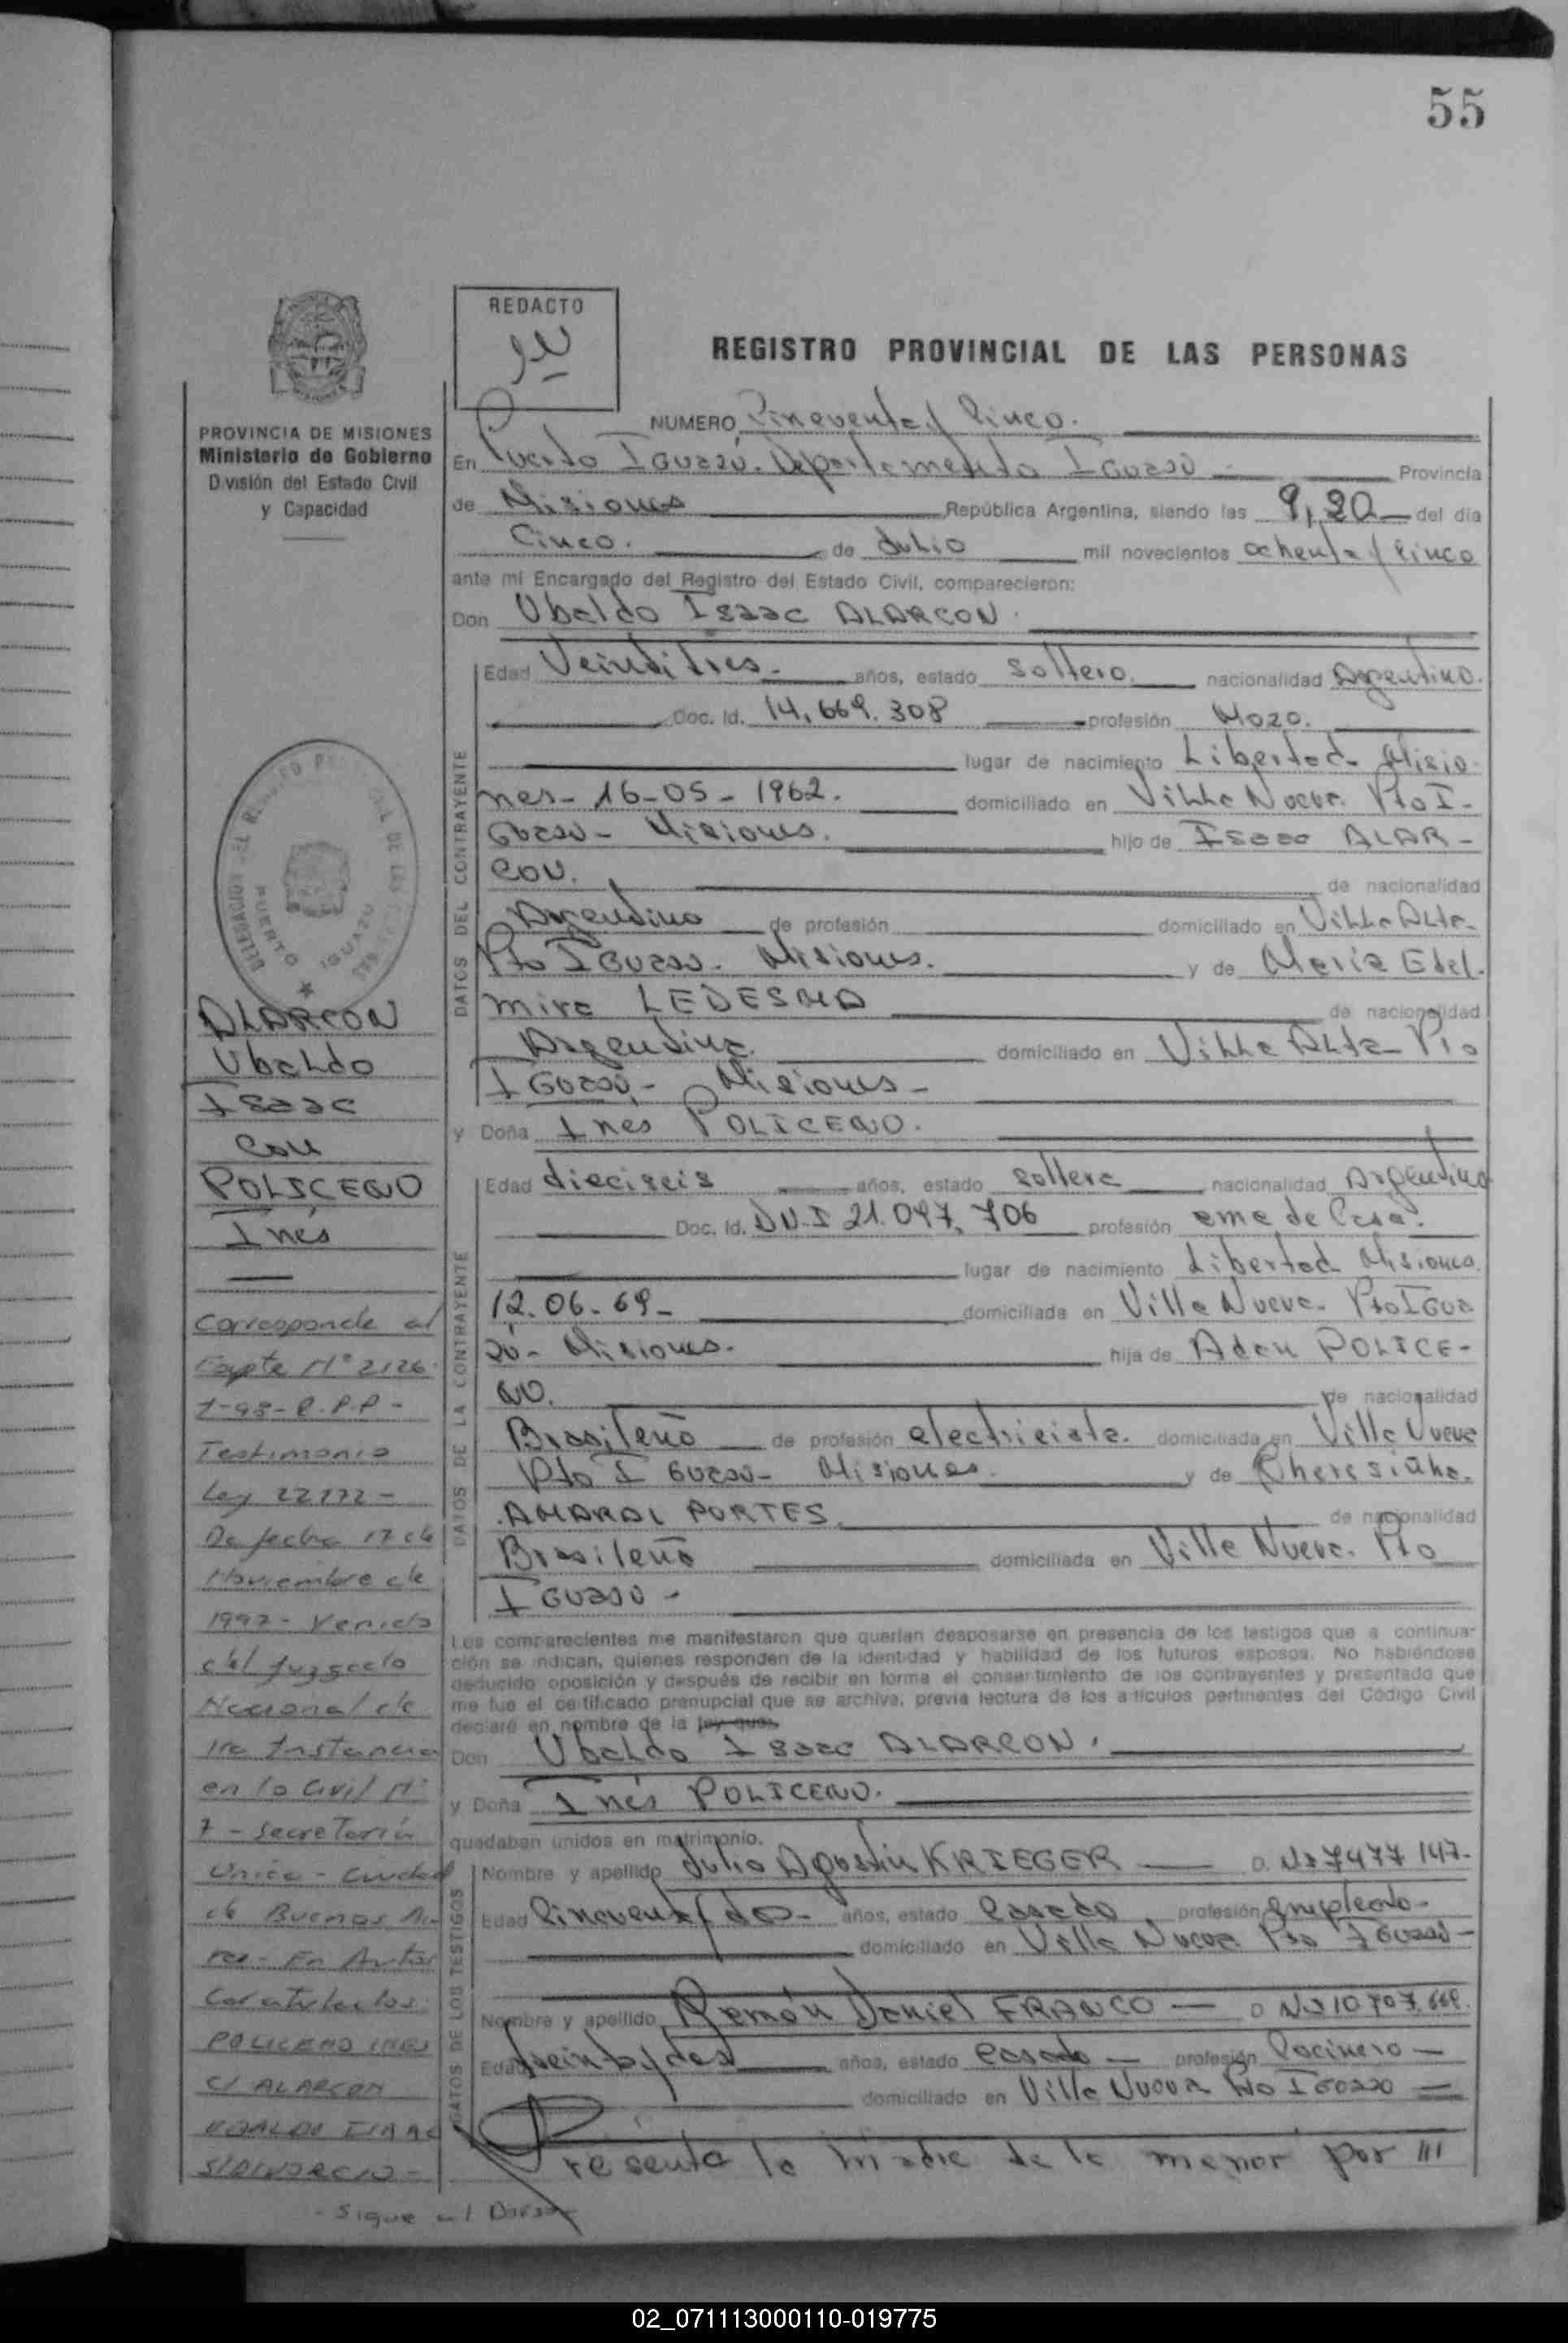 55
REDACTO
REGISTRO PROVINCIAL DE LAS PERSONAS
PROVINCIA DE MISIONES
Ministerio de Gobierno
División del Estado Civil
y Capacidad
NUMERO Cincuenta y Cinco.
En Puerto Iguazú. Departamento Iguazú Provincia
de Misiones República Argentina, siendo las 9,20 del día
Cinco. de Julio mil novecientos ochenta y Cinco
ante mi Encargado del Registro del Estado Civil, comparecieron:
Don Ubaldo Isaac ALARCON.
DATOS DEL CONTRAYENTE
Edad Veintitres años, estado soltero. nacionalidad Argentino.
Doc. Id. 14.669.308 profesión Mozo.
lugar de nacimiento Libertad - Misio-
nes - 16-05-1962. domiciliado en Villa Nueva. Pto I-
guazú - Misiones. hijo de Isaac ALAR-
CON. de nacionalidad
Argentino de profesión domiciliado en Villa Alta-
Pto Iguazú. Misiones. y de Maria Edel-
mira LEDESMA de nacionalidad
Argentina. domiciliado en Villa Alta - Pto
Iguazú, - Misiones -
y Doña Inés POLICENO.
DATOS DE LA CONTRAYENTE
Edad dieciseis años, estado soltera nacionalidad Argentina
Doc. Id. DNI 21.047.706 profesión ama de Casa.
lugar de nacimiento Libertad Misiones.
12.06.69- domiciliada en Villa Nueva. Pto Igua
zú - Misiones. hija de Adeu POLICE-
NO. de nacionalidad
Brasileño de profesión electricista. domiciliada en Villa Nueva
Pto Iguazú - Misiones. y de
AMARAL PORTES. de nacionalidad
Brasileña domiciliada en Villa Nueva. Pto
Iguazú -
Los comparecientes me manifestaron que querían desposarse en presencia de los testigos que a continua-
ción se indican, quienes responden de la identidad y habilidad de los futuros esposos. No habiéndose
deducido oposición y después de recibir en forma el consentimiento de los contrayentes y presentado que
me fue el certificado prenupcial que se archiva, previa lectura de los artículos pertinentes del Código Civil
declaré en nombre de la ley que:
Don Ubaldo Isaac ALARCON.
y Doña Inés POLICENO.
quedaban unidos en matrimonio.
DATOS DE LOS TESTIGOS
Nombre y apellido Julio Agostin KRIEGER D. Nº 7477 147-
Edad Cincuenta y dos- años, estado Casado profesión empleado-
domiciliado en Villa Nueva Pto Iguazú -
Nombre y apellido Ramón Daniel FRANCO — D Nº 10 707.669.
Edad treinta y dos años, estado Casado — profesión Cocinero —
domiciliado en Villa Nueva Pto Iguazú
Presente la madre de la menor por ///
DELEGACION DEL REGISTRO PROVINCIAL DE LAS PERSONAS
PUERTO IGUAZU
ALARCON
Ubaldo
Isaac
Con
POLICENO
Inés
Corresponde al
Expte Nº 2126
1-98-R.P.P-
Testimonio
Ley 22172-
De fecha 17 de
Noviembre de
1997- Venido
del Juzgado
Nacional de
1ra Instancia
en lo Civil Nº
7 - Secretaría
Única - Ciudad
de Buenos Ai-
res - En Autos
Caratulados:
POLICENO INES
C/ ALARCON
UBALDO ISAAC
S/DIVORCIO-
- Sigue al Dorso
02_071113000110-019775